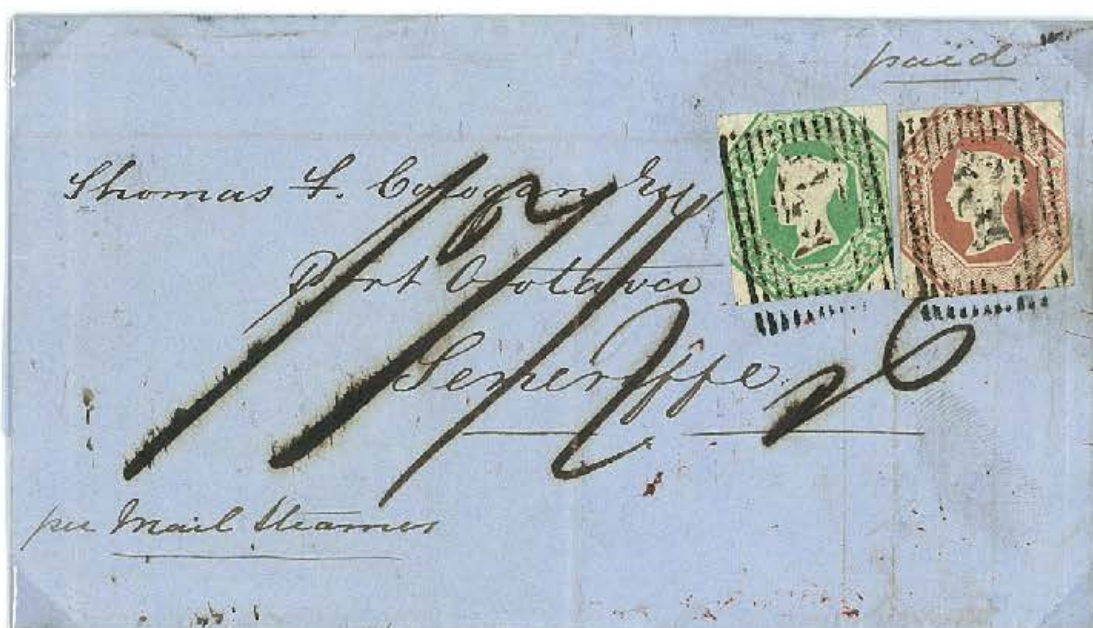 paid
Thomas F. Cologan Esqr
Port Orotava
Teneriffe
per Mail Steamer